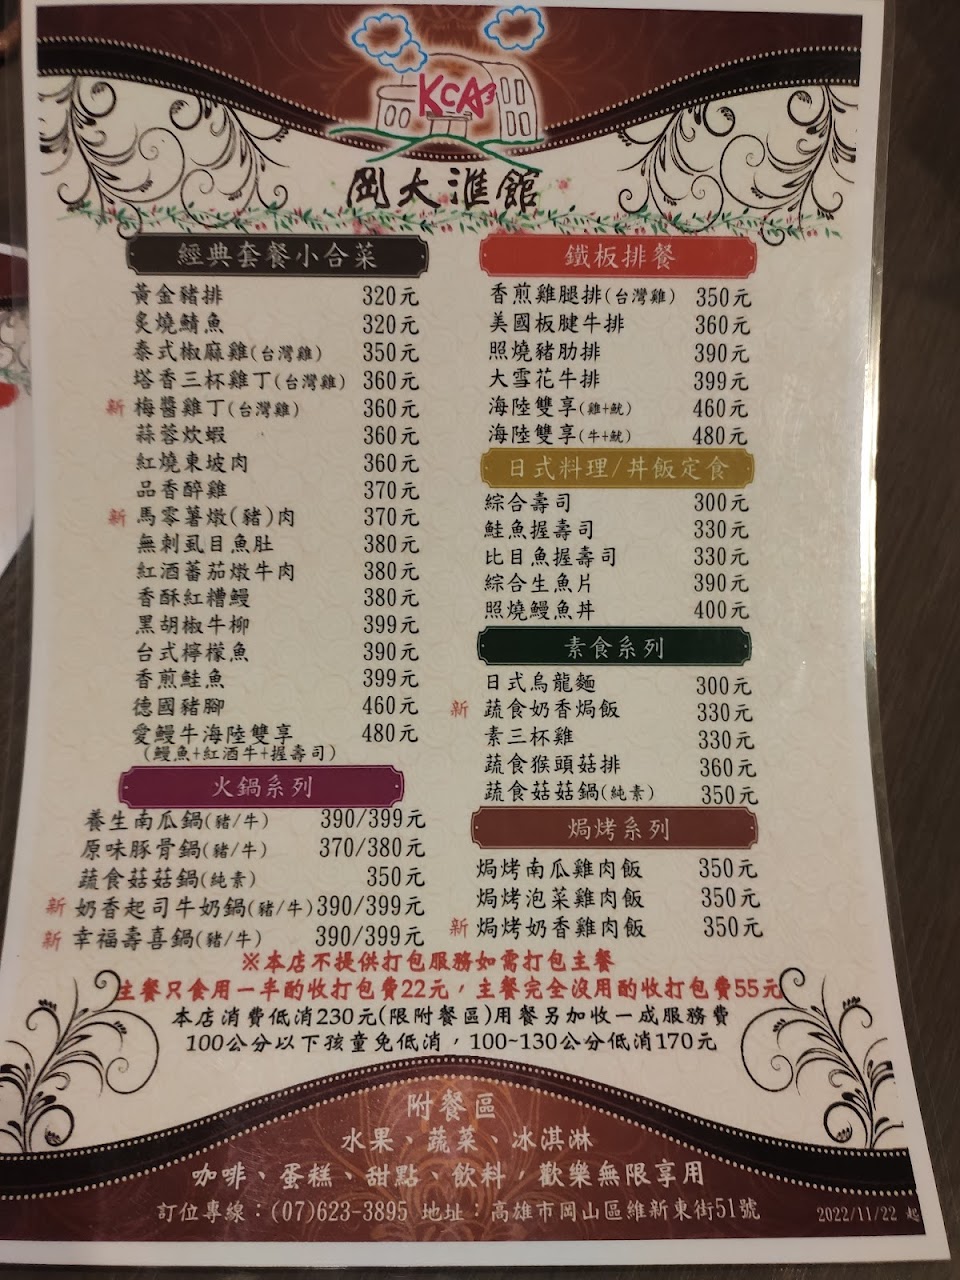 KCA
岡大滙館
經典套餐小合菜
黃金豬排 320元
炙燒鯖魚 320元
泰式椒麻雞(台灣雞) 350元
塔香三杯雞丁(台灣雞) 360元
新 梅醬雞丁(台灣雞) 360元
蒜蓉炊蝦 360元
紅燒東坡肉 360元
品香醉雞 370元
新 馬零薯燉(豬)肉 370元
無刺虱目魚肚 380元
紅酒蕃茄燉牛肉 380元
香酥紅糟鰻 380元
黑胡椒牛柳 399元
台式檸檬魚 390元
香煎鮭魚 399元
德國豬腳 460元
愛鰻牛海陸雙享 480元
(鰻魚+紅酒牛+握壽司)
火鍋系列
養生南瓜鍋(豬/牛) 390/399元
原味豚骨鍋(豬/牛) 370/380元
蔬食菇菇鍋(純素) 350元
新 奶香起司牛奶鍋(豬/牛) 390/399元
新 幸福壽喜鍋(豬/牛) 390/399元
鐵板排餐
香煎雞腿排(台灣雞) 350元
美國板腱牛排 360元
照燒豬肋排 390元
大雪花牛排 399元
海陸雙享(雞+魷) 460元
海陸雙享(牛+魷) 480元
日式料理/丼飯定食
綜合壽司 300元
鮭魚握壽司 330元
比目魚握壽司 330元
綜合生魚片 390元
照燒鰻魚丼 400元
素食系列
日式烏龍麵 300元
新 蔬食奶香焗飯 330元
素三杯雞 330元
蔬食猴頭菇排 360元
蔬食菇菇鍋(純素) 350元
焗烤系列
焗烤南瓜雞肉飯 350元
焗烤泡菜雞肉飯 350元
新 焗烤奶香雞肉飯 350元
※本店不提供打包服務如需打包主餐
主餐只食用一半酌收打包費22元，主餐完全沒用酌收打包費55元
本店消費低消230元(限附餐區)用餐另加收一成服務費
100公分以下孩童免低消，100~130公分低消170元
附餐區
水果、蔬菜、冰淇淋
咖啡、蛋糕、甜點、飲料，歡樂無限享用
訂位專線：(07)623-3895 地址：高雄市岡山區維新東街51號
2022/11/22 起